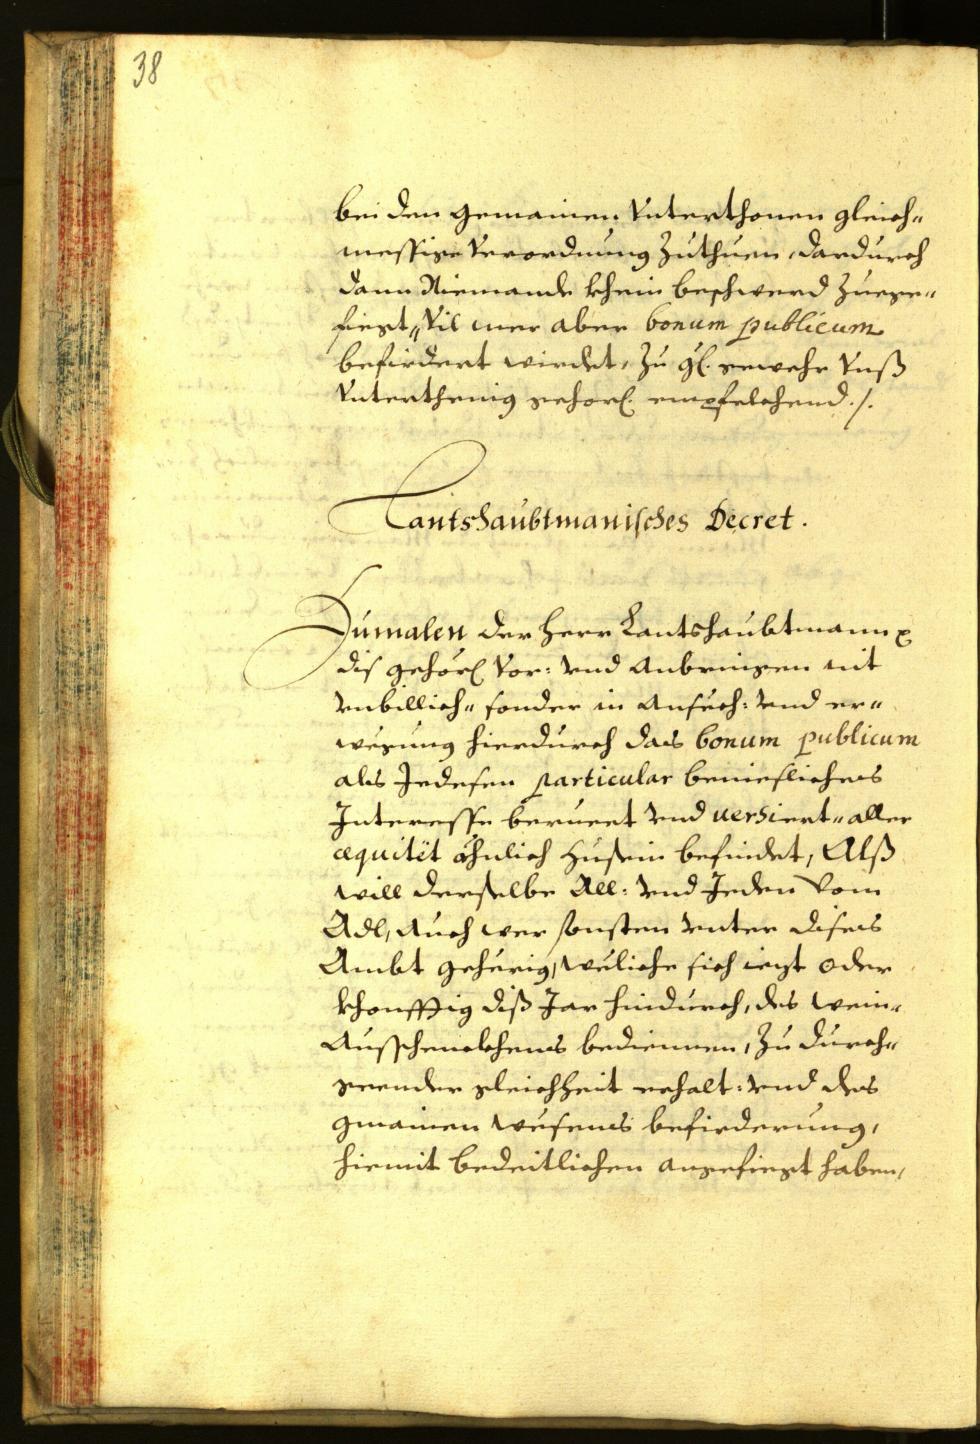 38
bei den gemainen Vnterthonen gleich„
messige Verordnung zuthuen, dardurch
dann Niemande khein beschwerd zuege„
fiegt„ Vil mer aber bonum publicum
befirdert wirdet, Zu gl. gewehr Vnß
Vnterthenig gehorl. empfelchend ./.
Lantshaubtmanisches Decret.
Zumalen der Herr Lantshaubtmann
dis gehörl Vor: vnd Anbringen nit
vnbillich„ sonder in Ansech: vnd er„
wegung hierdurch das bonum publicum
als Jedessen particular beniesliches
Interesse beruert vnd versiert„ aller
æquitët ähnlich zusein befindet, Alß
will derselbe All: vnd Jeden Vom
Adl, Auch wer sonsten vnter dises
Ambt gehörig, weliche sich iezt oder
khonfftig diß Jar hindurch, des Wein„
Ausschenckhens bediennen, Zu durch„
geender gleichheit erhalt: vnd des
gmainen wesens befirderung,
hiemit bedeitlichen angefiegt haben,